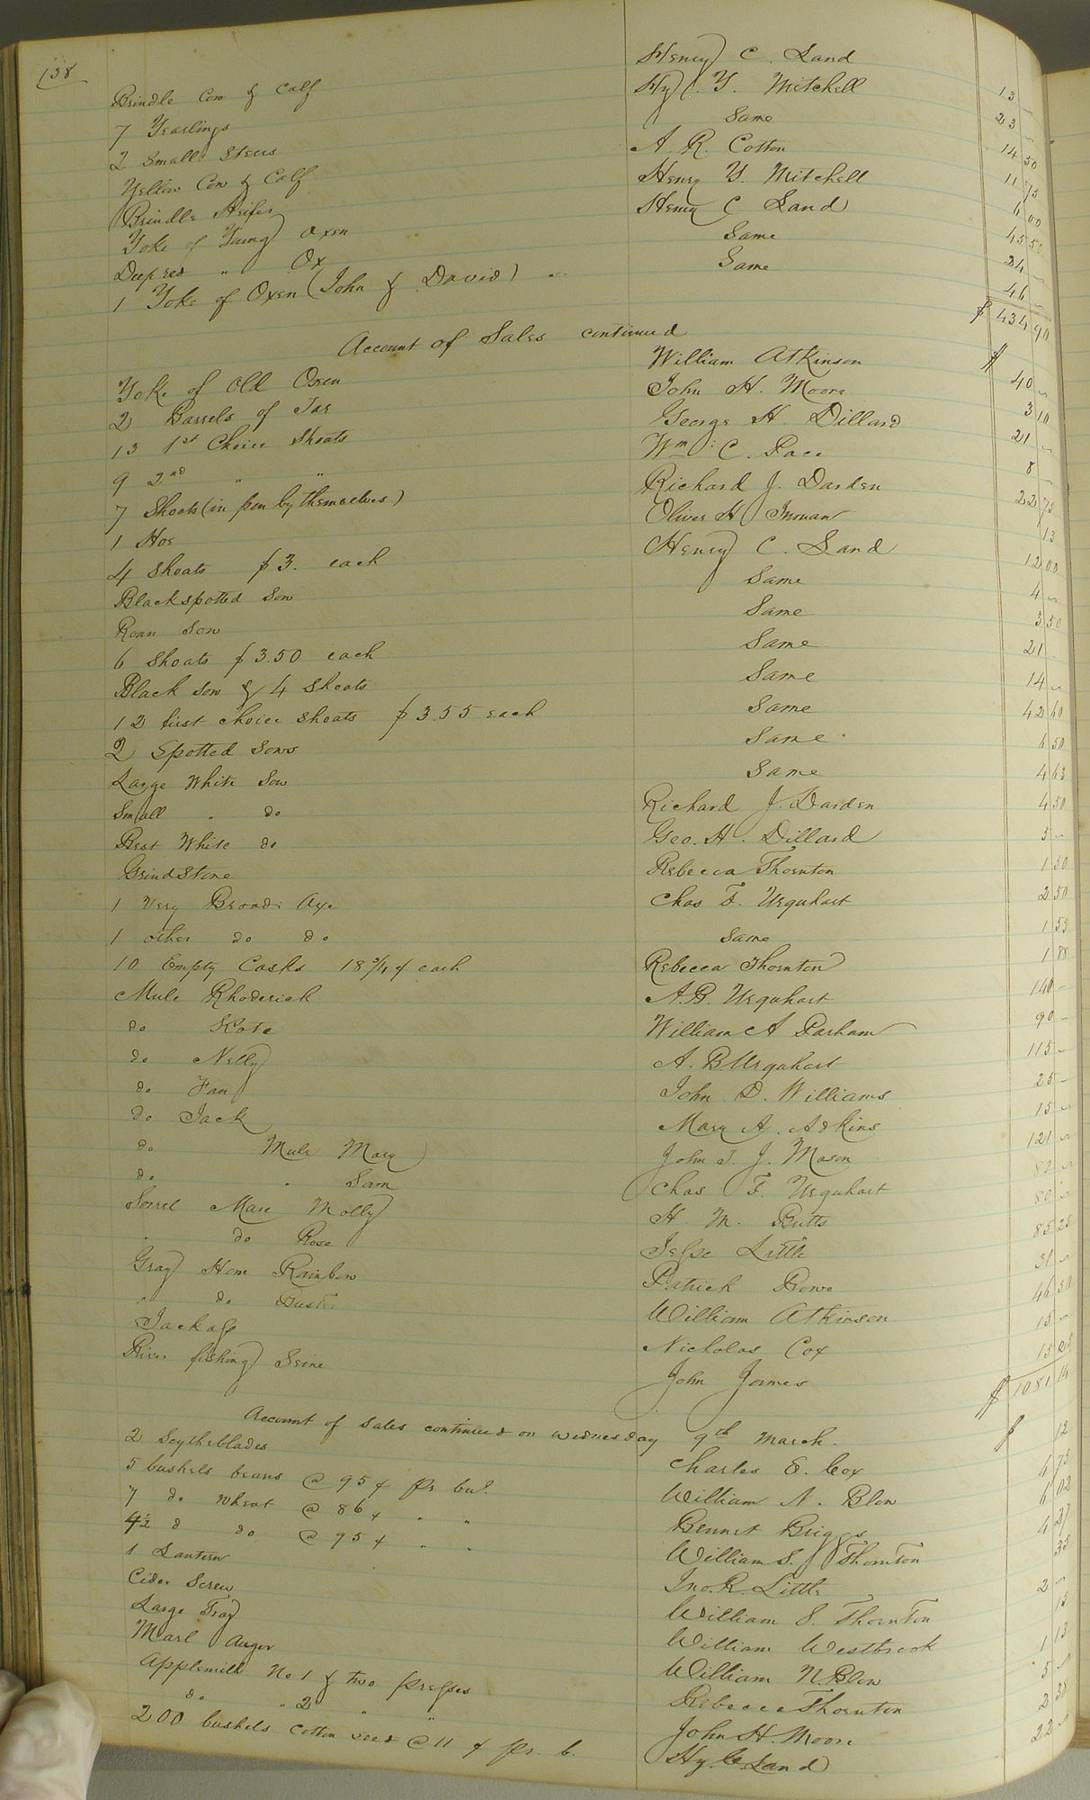 138
Brindle Cow & Calf Henry C. Land 13 —
7 Yearlings Hy C. Y. Mitchell 23 —
2 Small Steers Same 14 50
Yellow Cow & Calf A. R. Cotton 11 75
Brindle Heifer Henry Y. Mitchell 6 00
Yoke of Young Oxen Henry C Land 45 50
" Ox Same 24 —
1 Yoke of Oxen (John & David) Same 46 —
$ 434 90
Account of Sales continued
Yoke of Old Oxen William Atkinson $ 40 —
2 Barrels of Tar John H. Moore 3 10
13 1st Choice Shoats George H. Dillard 21 —
9 2nd " " Wm. C. Pace 8 —
7 Shoats (in pen by themselves) Richard J. Darden 22 75
1 Hoe Oliver H Inman 13
4 Shoats $3. each Henry C. Land 12 00
Black spotted Sow Same 4 —
Roan Sow Same 3 50
6 Shoats $3.50 each Same 21
Black Sow & 4 Shoats Same 14 —
12 first choice shoats $3.55 each Same 42 60
2 Spotted Sows Same 6 50
Large White Sow Same 4 63
Small " do Richard J. Darden 4 50
Best White do Geo. H. Dillard 5 —
GrindStone Rebecca Thornton 1 50
1 Very Broad Axe Chas F. Urquhart 2 50
1 other do do Same 1 55
10 Empty Casks 18 3/4 ¢ each Rebecca Thornton 1 88
Mule Rhoderick A. B. Urquhart 140 —
do Kate William A Parham 90 —
do Nelly A. B Urquhart 115 —
do Fan John D. Williams 25 —
do Jack Mary A. Adkins 15 —
do Mule Mary John T. J. Mason 121 —
do " Sam Chas F. Urquhart 82 —
Sorrel Mare Molly H. M. Butts 80 —
" do Rose Jesse Little 85 25
Gray Horse Rainbow Patrick 31 —
" do William Atkinson 46 50
Jackass Nicholas Cox 15 —
River fishing Seine John Joyner 15 25
$ 1081 14
Account of Sales continued on Wednesday 9th March.
2 Scytheblades Charles E. Cox $ 12
5 bushels beans @ 95¢ pr bul. William N. Blow 4 75
7 do Wheat @ 86¢ " " Bennet Briggs 6 02
4½ d do @ 95¢ " " William S. Thornton 4 27
1 Lantern Jno. R. Little 35
Cider Screw William S Thornton 2 —
Large Tray William Westbrook 15
Marl Auger William N. Blow 1 13
Applemill No 1 & two presses Rebecca Thornton 5 —
do " 2 " " John H. Moore 2 38
200 bushels cotton seed @ 11 ¢ pr. b. Hy. C. Land 22 —